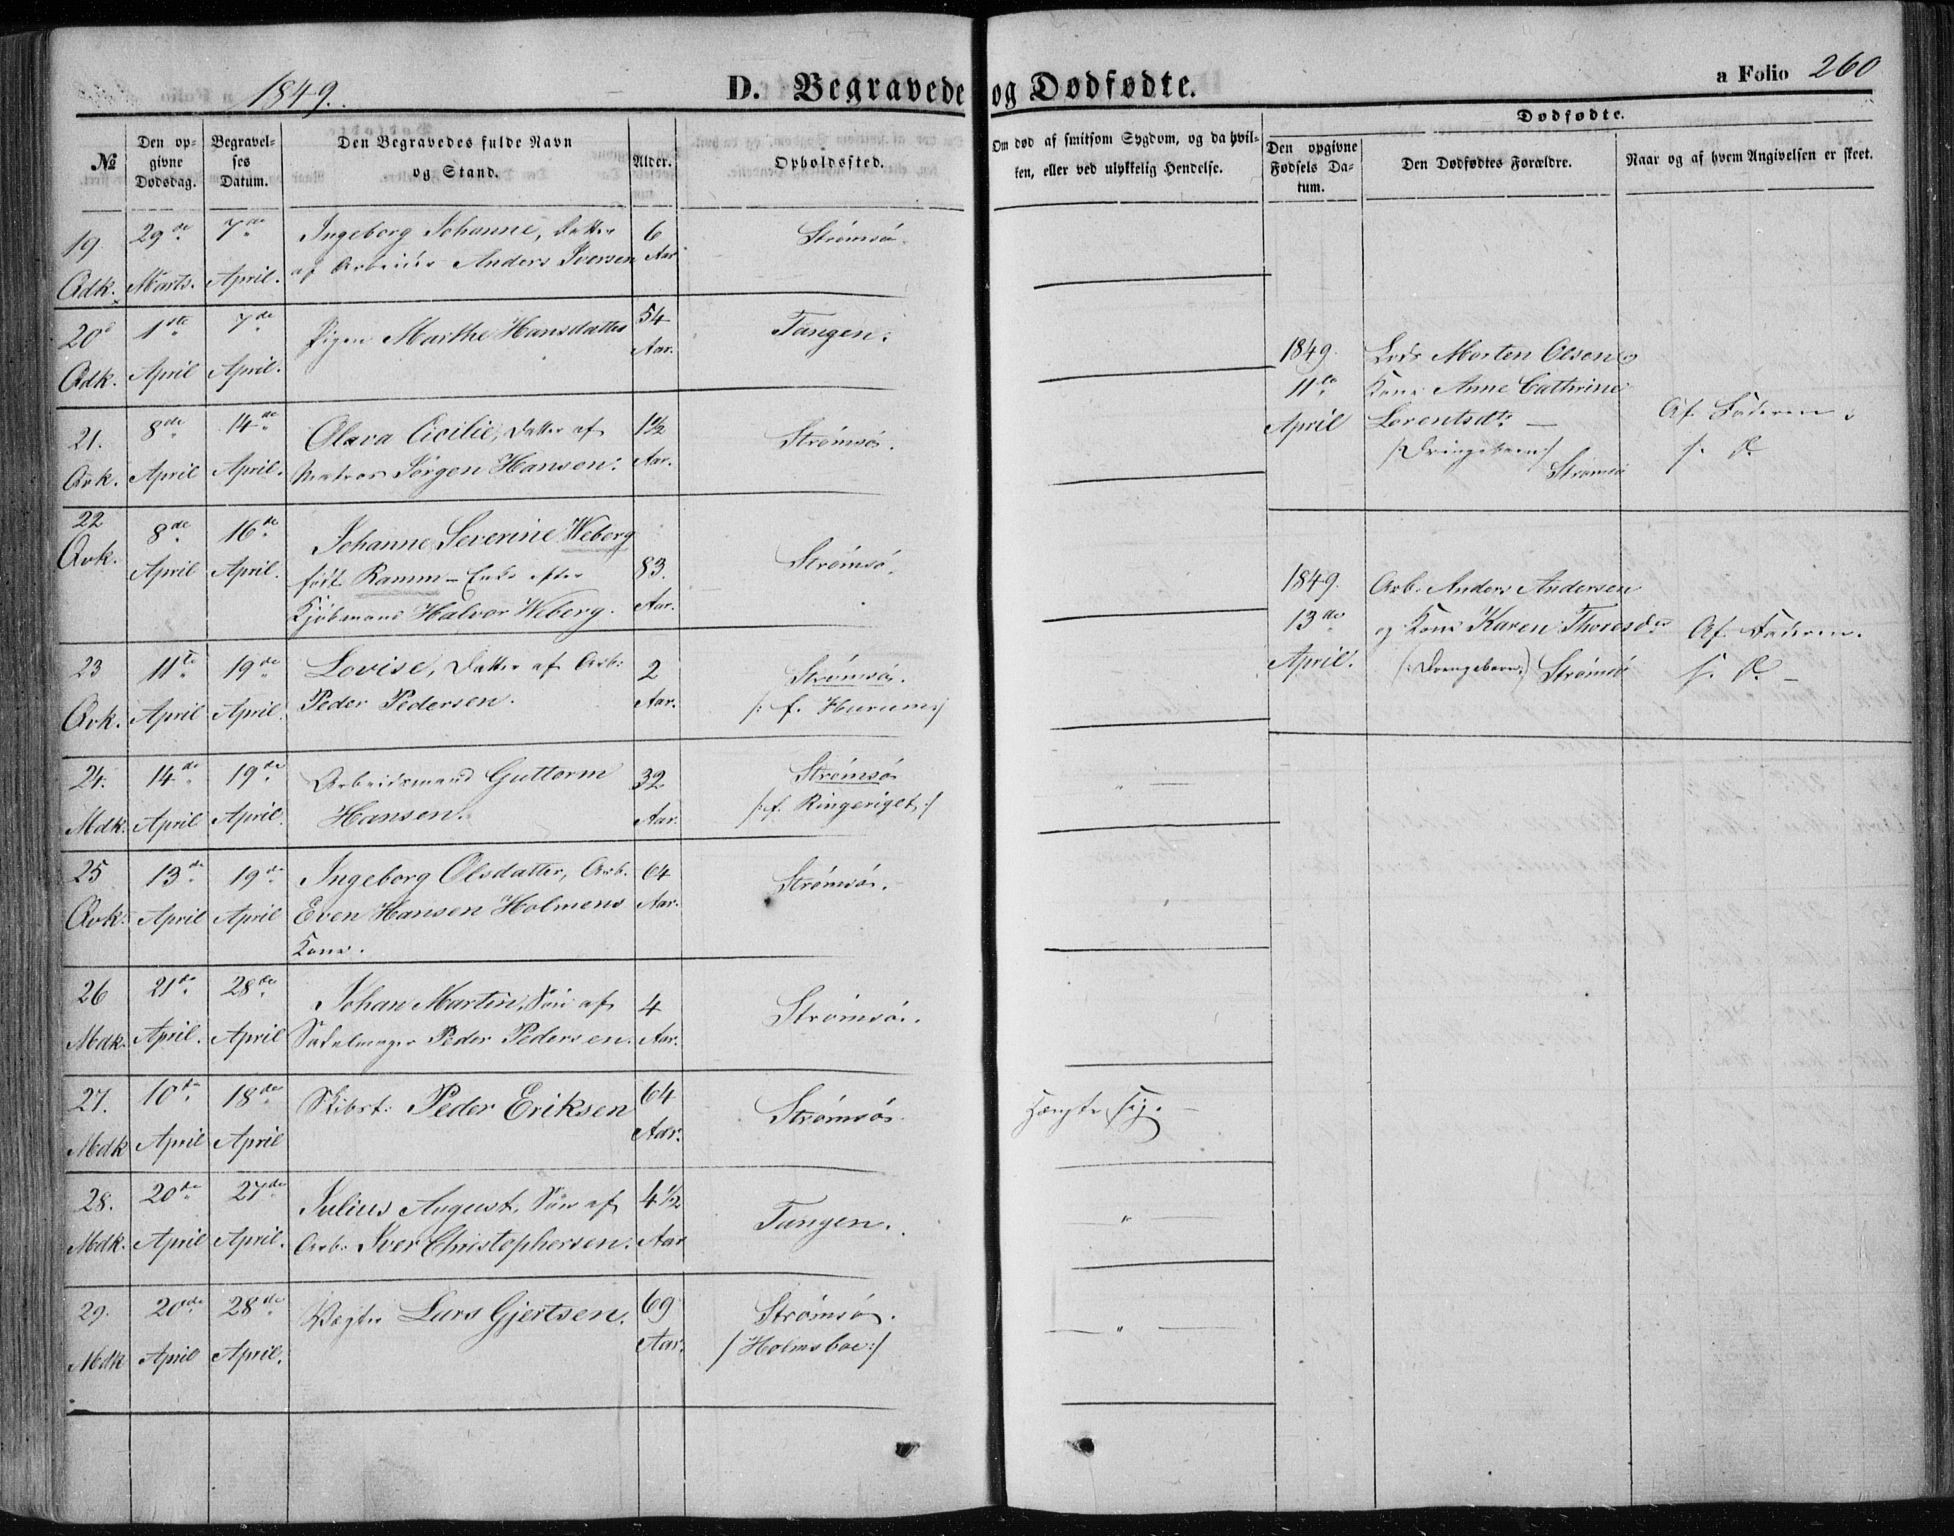 1849.
D. Begravede og Dødfødte.
a Folio 260
№
Den opgivne Dødsdag.
Begravelses Datum.
Den Begravedes fulde Navn og Stand.
Alder.
Opholdssted.
Om død af smitsom Sygdom, og da hvilken, eller ved ulykkelig Hendelse.
Dødfødte.
Den opgivne Fødsels Datum.
Den Dødfødtes Forældre.
Naar og af hvem Angivelsen er skeet.
19 29de 7de Ingeborg Johanne, Datter 6 Strømsø.
Qdk. Marts. April. af Arbeider Anders Iversen Aar
20 1ste 7de Pigen Marthe Hansdatter 54 Tangen.
Qdk. April April. Aar.
21. 8de 14de Olava Cicilie, Datter af 1½ Strømsø.
Qvk. April April. Matros Jørgen Hansen. Aar.
22 8de 16de Johanne Severine Weberg
Qvk. April April. født Ramm - Enke efter 83. Strømsø.
Kjøbmand Halvor Weberg. Aar.
23 11te 19de Lovise, Datter af Arb: 2 Strømsø.
Qvk. April April. Peder Pedersen. Aar. /: f. Hurum:/
24. 14de 19de Arbeidsmand Guttorm 32 Strømsø
Mdk. April April. Hansen. Aar. /: f. Ringeriget :/ "
25 13de 19de Ingeborg Olsdatter, Arb. 64 Strømsø.
Qvk. April April Even Hansen Holmens Aar.
Kone.
26 21de 28de Johan Martin, Søn af 4 Strømsø.
Mdk. April. April Sadelmager Peder Pedersen. Aar.
27. 10de 18de Skibst. Peder Eriksen 64 Strømsø. Hængte sig. -
Mdk April April Aar.
28. 20de 27de Julius August, Søn af 4½ Tangen. "
Mdk. April April. Arb: Iver Christophersen. Aar
29. 20de 28de Vægter Lars Gjertsen. 69 Strømsø. "
Mdk April April. Aar. / Holmsboe :/
1849. Lods Morten Olsen og
11te Kone Anne Cathrine
April Lorentsdr. — Af Faderen
/: Drengebarn :/ s. D.
Strømsø
1849. Arb. Anders Andersen
13de og Kone Karen Thoresdr Af Faderen.
April. (: Drengebarn :) Strømsø s. D. -